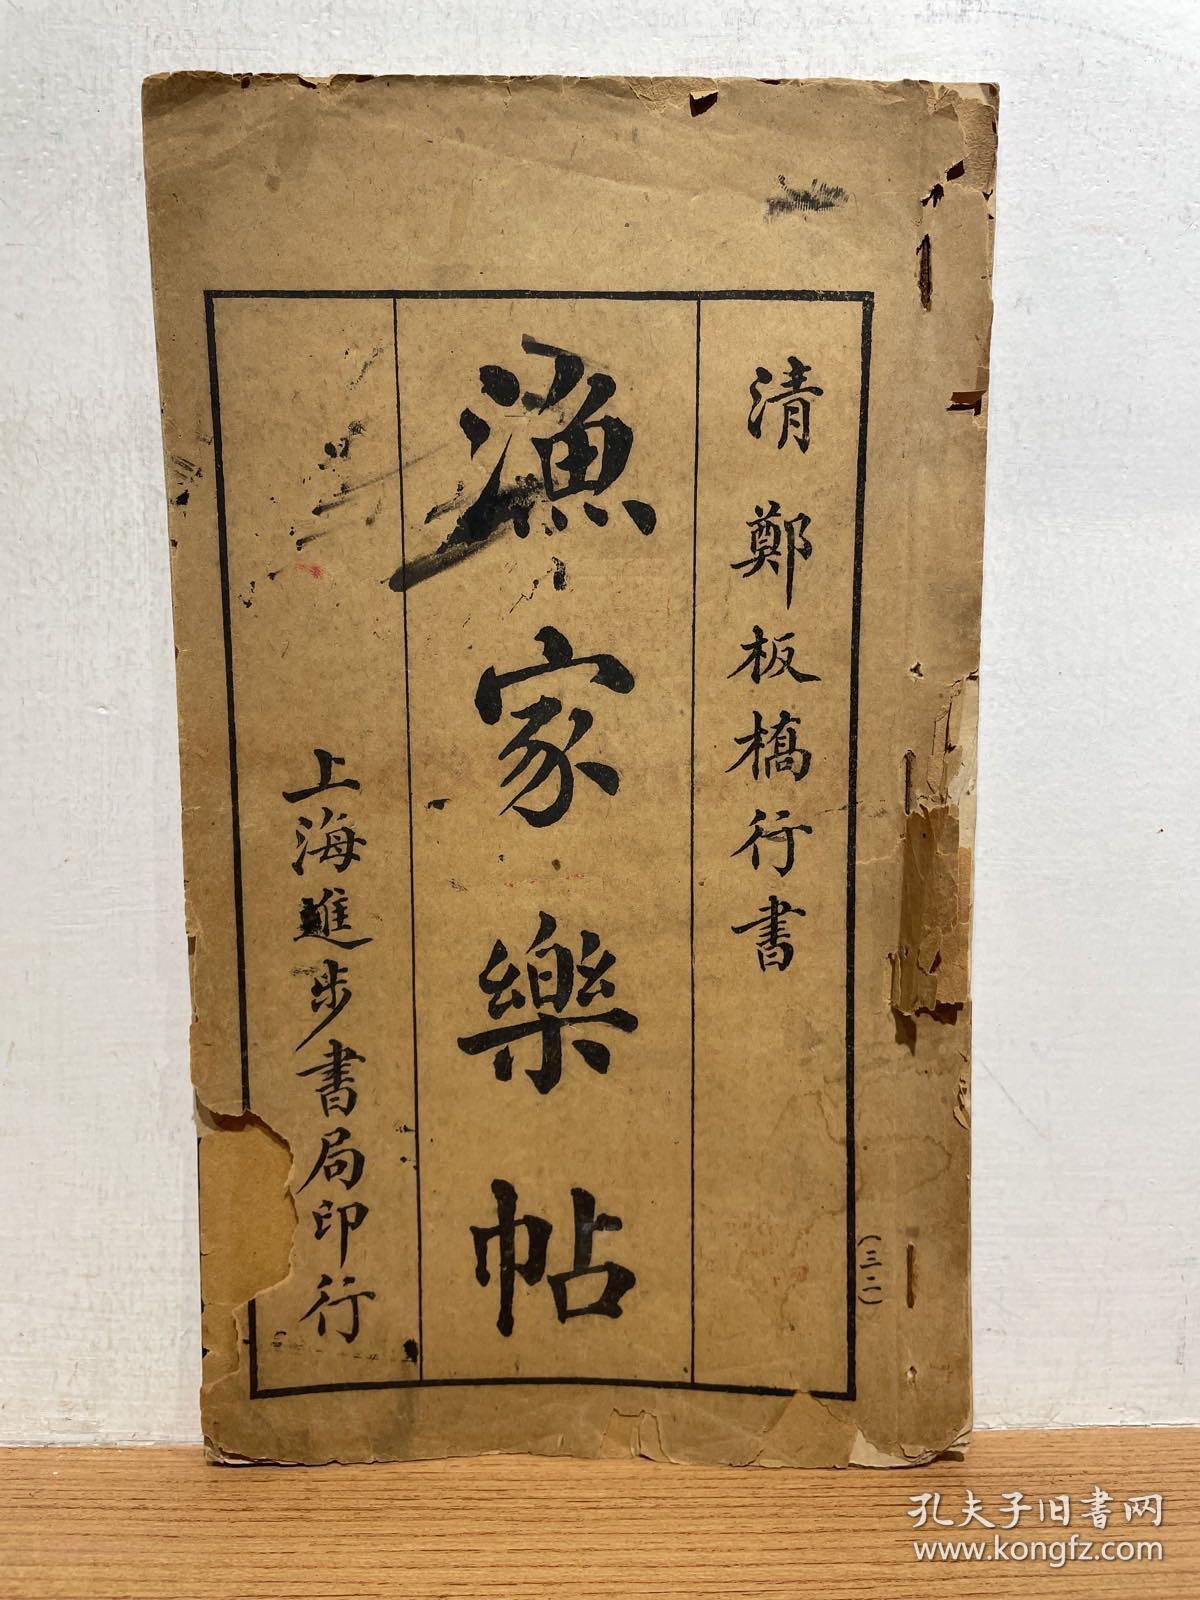 清鄭板橋行書
漁家樂帖
上海進步書局印行
(三二)
孔夫子旧书网
www.kongfz.com